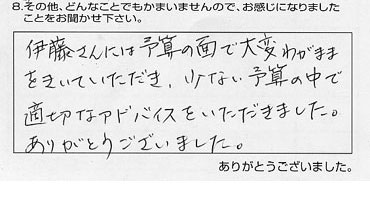 8.その他、どんなことでもかまいませんので、お感じになりました
ことをお聞かせ下さい。
伊藤さんには予算の面で大変わがまま
をきいていただき、少ない予算の中で
適切なアドバイスをいただきました。
ありがとうございました。
ありがとうございました。